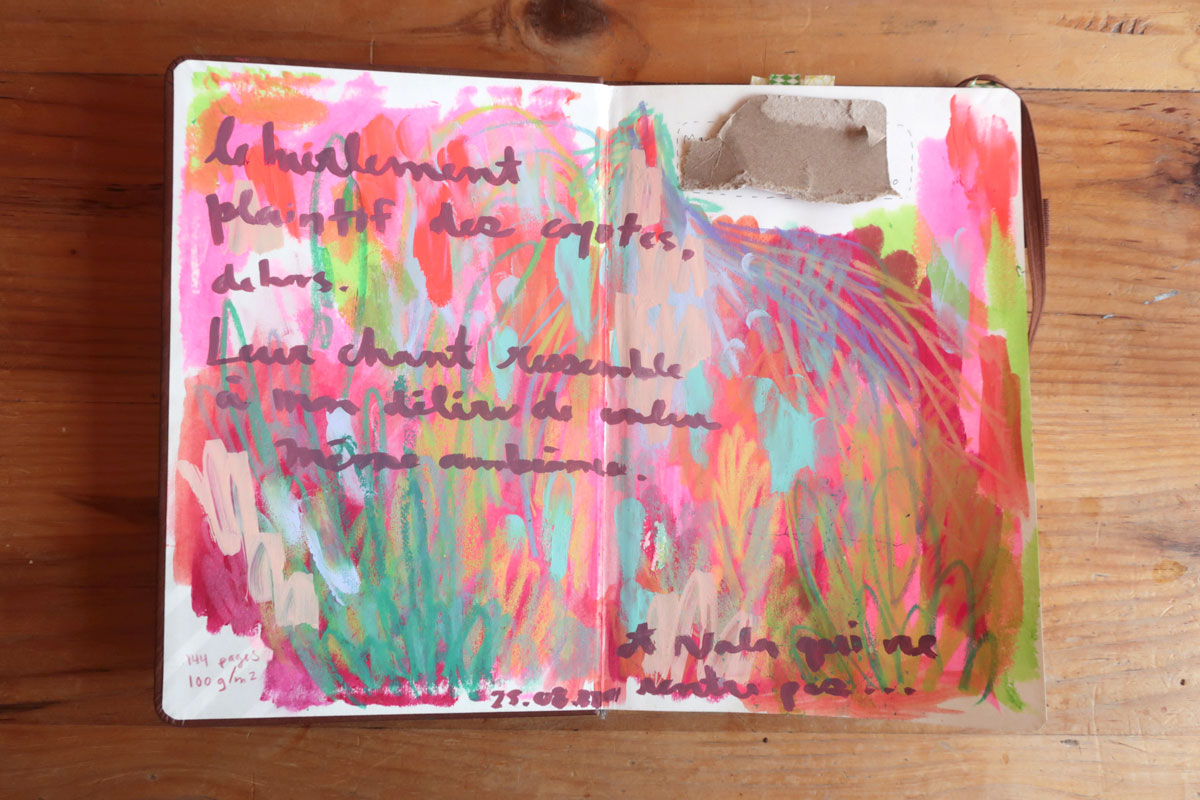 le hurlement
plaintif des coyotes,
dehors.
Leur chant ressemble
à mon délire de couleur
Même ambiance.
144 pages
100 g/m2
25.08.
Et Nala qui ne
rentre pas...